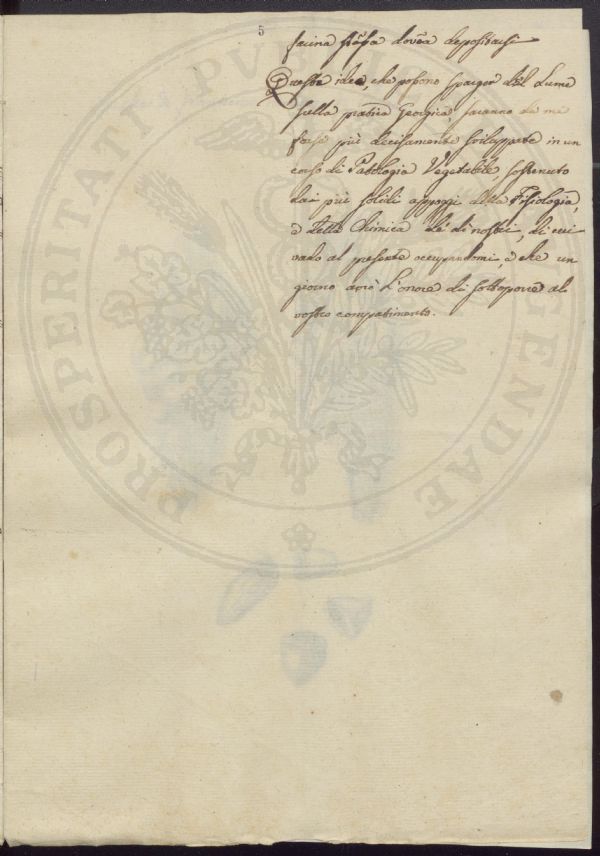 5
farina stessa dovea depositarsi
Queste idee, che possono sparger del Lume
sulla pratica Georgica, saranno da me
forse più decisamente sviluppate in un
corso di Patologia Vegetabile, sostenuto
dai più solidi appoggi della Fisiologia,
e della Chimica de' dì nostri, di cui
vado al presente occupandomi, e che un
giorno avrò l'onore di sottoporre al
vostro compatimento.
PROSPERITATI PUBLICAE AUGENDAE